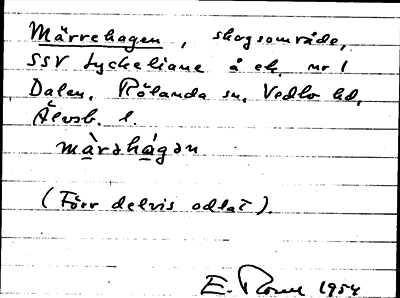 Märrehagen, skogsområde,
SSV Lyckeliane å ek. nr 1
Dalen. Rölanda sn, Vedbo hd,
Älvsb. l.
màrəhágən
(Förr delvis odlat).
E. 1954